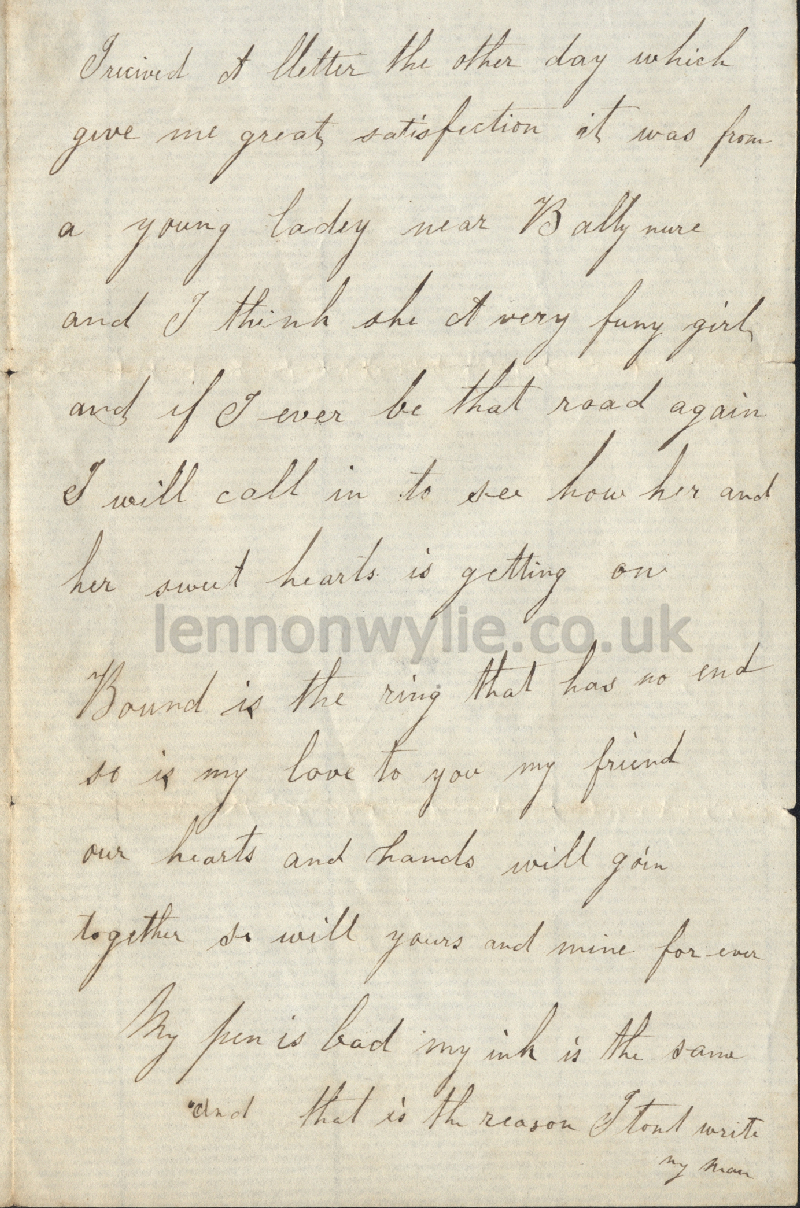 I recived A lletter the other day which
give me great satisfection it was from
a young ladey near Ballynure
and I think she A very funy girl
and if I ever be that road again
I will call in to see how her and
her sweet hearts is getting on
lennonwylie.co.uk
Bound is the ring that has no end
so is my love to you my friend
our hearts and hands will goin
together so will yours and mine for ever
My pen is bad my ink is the same
and that is the reason I tont write
my